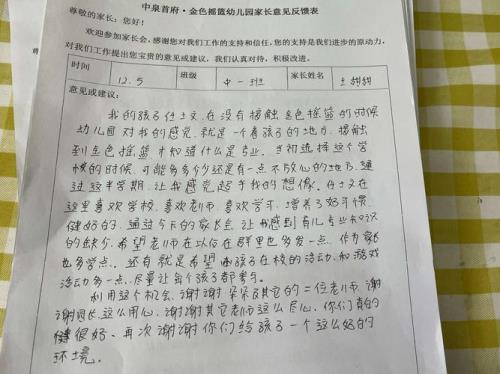 中泉首府·金色摇篮幼儿园家长意见反馈表
尊敬的家长:您好!
欢迎参加家长会,感谢您对我们工作的支持和信任,您的支持是我们进步的原动力,
对我们工作提出您宝贵的意见或建议,我们认真对待,积极改进。
时间 12.5 班级 中一班 家长姓名 王甜甜
意见或建议:
我的孩子任士文,在没有接触金色摇篮的时候
幼儿园对我的感觉就是一个看孩子的地方,接触
到金色摇篮才知道什么是专业。当初选择这个学
校的时候,可能多多少少还是有一点不放心的地方,通
过这半学期,让我感觉超乎我的想像。任士文在
这里喜欢学校,喜欢老师,喜欢学习,培养了好习惯,
健好的,通过今天的家长会,让我感到育儿专业知识
的缺少,希望老师在以后在群里也多发一点,作为家长
也多学点。还有就是希望孩子在校的活动,和游戏
活动多一点,尽量让每个孩子都参与。
利用这个机会,谢谢朵朵及其它的二位老师,谢
谢园长,这么用心,谢谢其它老师这么尽心,你们真的
很好、再次谢谢你们给孩子一个这么好的
环境。